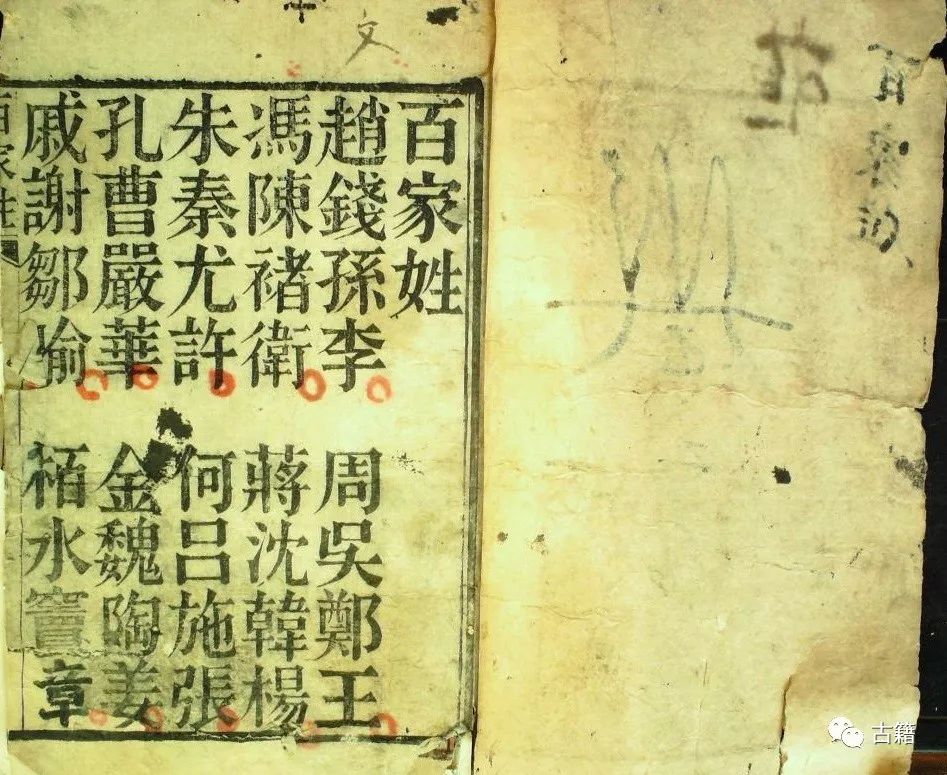 百家姓
文
百家姓
趙錢孫李 周吳鄭王
馮陳褚衛 蔣沈韓楊
朱秦尤許 何呂施張
孔曹嚴華 金魏陶姜
戚謝鄒喻 栢水竇章
百家姓
古籍